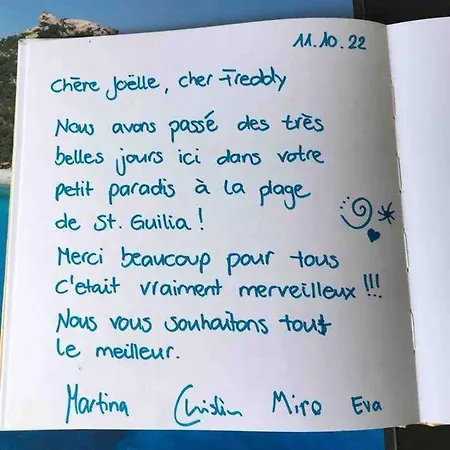 11.10.22
Chère Joëlle, cher Freddy
Nous avons passé des très
belles jours ici dans votre
petit paradis à la plage
de St. Guilia!
Merci beaucoup pour tous
c'etait vraiment merveilleux!!!
Nous vous souhaitons tout
le meilleur.
Martina Miro Eva